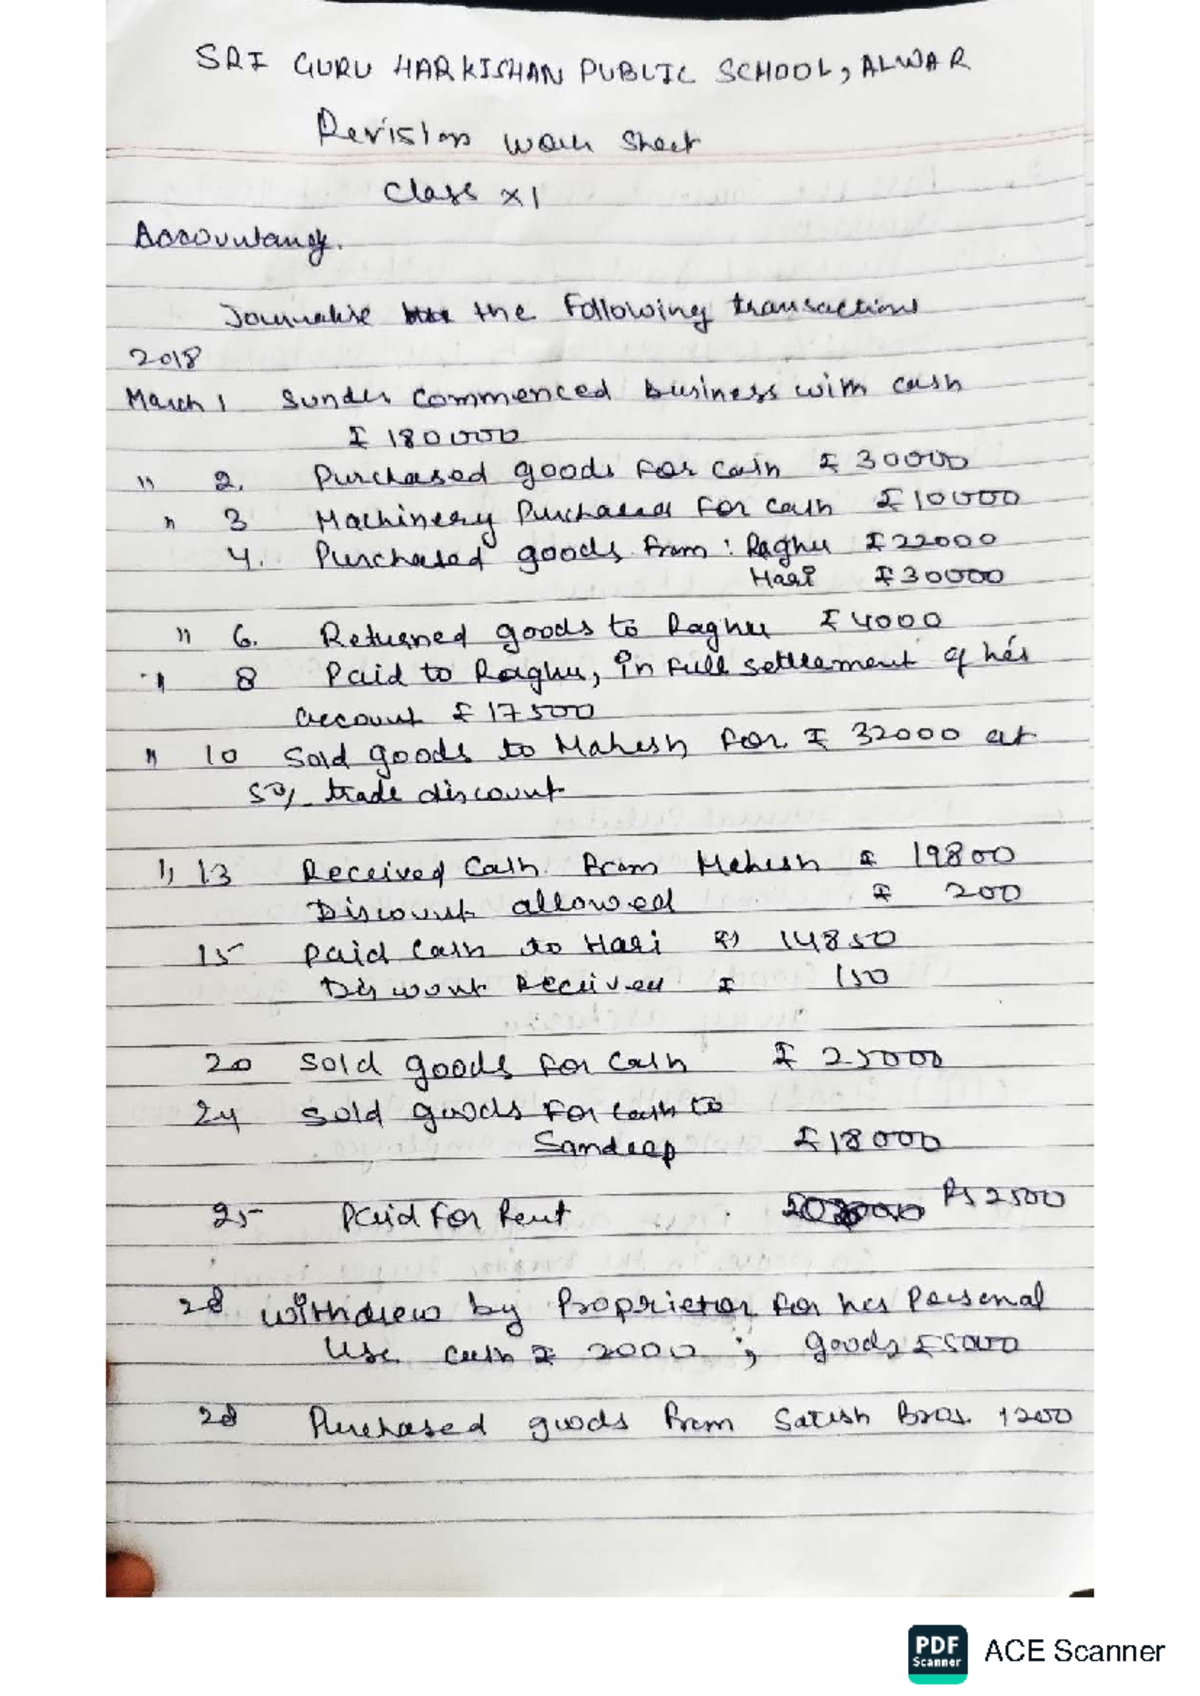 SRI GURU HARKISHAN PUBLIC SCHOOL, ALWAR
Revision Work Sheet
Class XI
Accountancy.
Journalise the following transactions
2018
March 1 Sunder commenced business with cash
₹ 180000
" 2. Purchased goods for cash ₹ 30000
" 3 Machinery Purchased for cash ₹ 10000
4. Purchased goods from : Raghu ₹ 22000
Hari ₹ 30000
" 6. Returned goods to Raghu ₹ 4000
" 8 Paid to Raghu, in full settlement of his
account ₹ 17500
" 10 Sold goods to Mahesh for ₹ 32000 at
5% trade discount
" 13 Received Cash from Mahesh ₹ 19800
Discount allowed ₹ 200
15 paid cash to Hari ₹ 14850
Discount Received ₹ 150
20 Sold goods for cash ₹ 25000
24 Sold goods for cash to
Sandeep ₹ 18000
25 Paid for Rent Rs 2500
28 withdrew by Proprietor for his Personal
Use cash ₹ 2000 ; goods ₹ 5000
28 Purchased goods from Satish Bros. 1200
PDF
Scanner
ACE Scanner